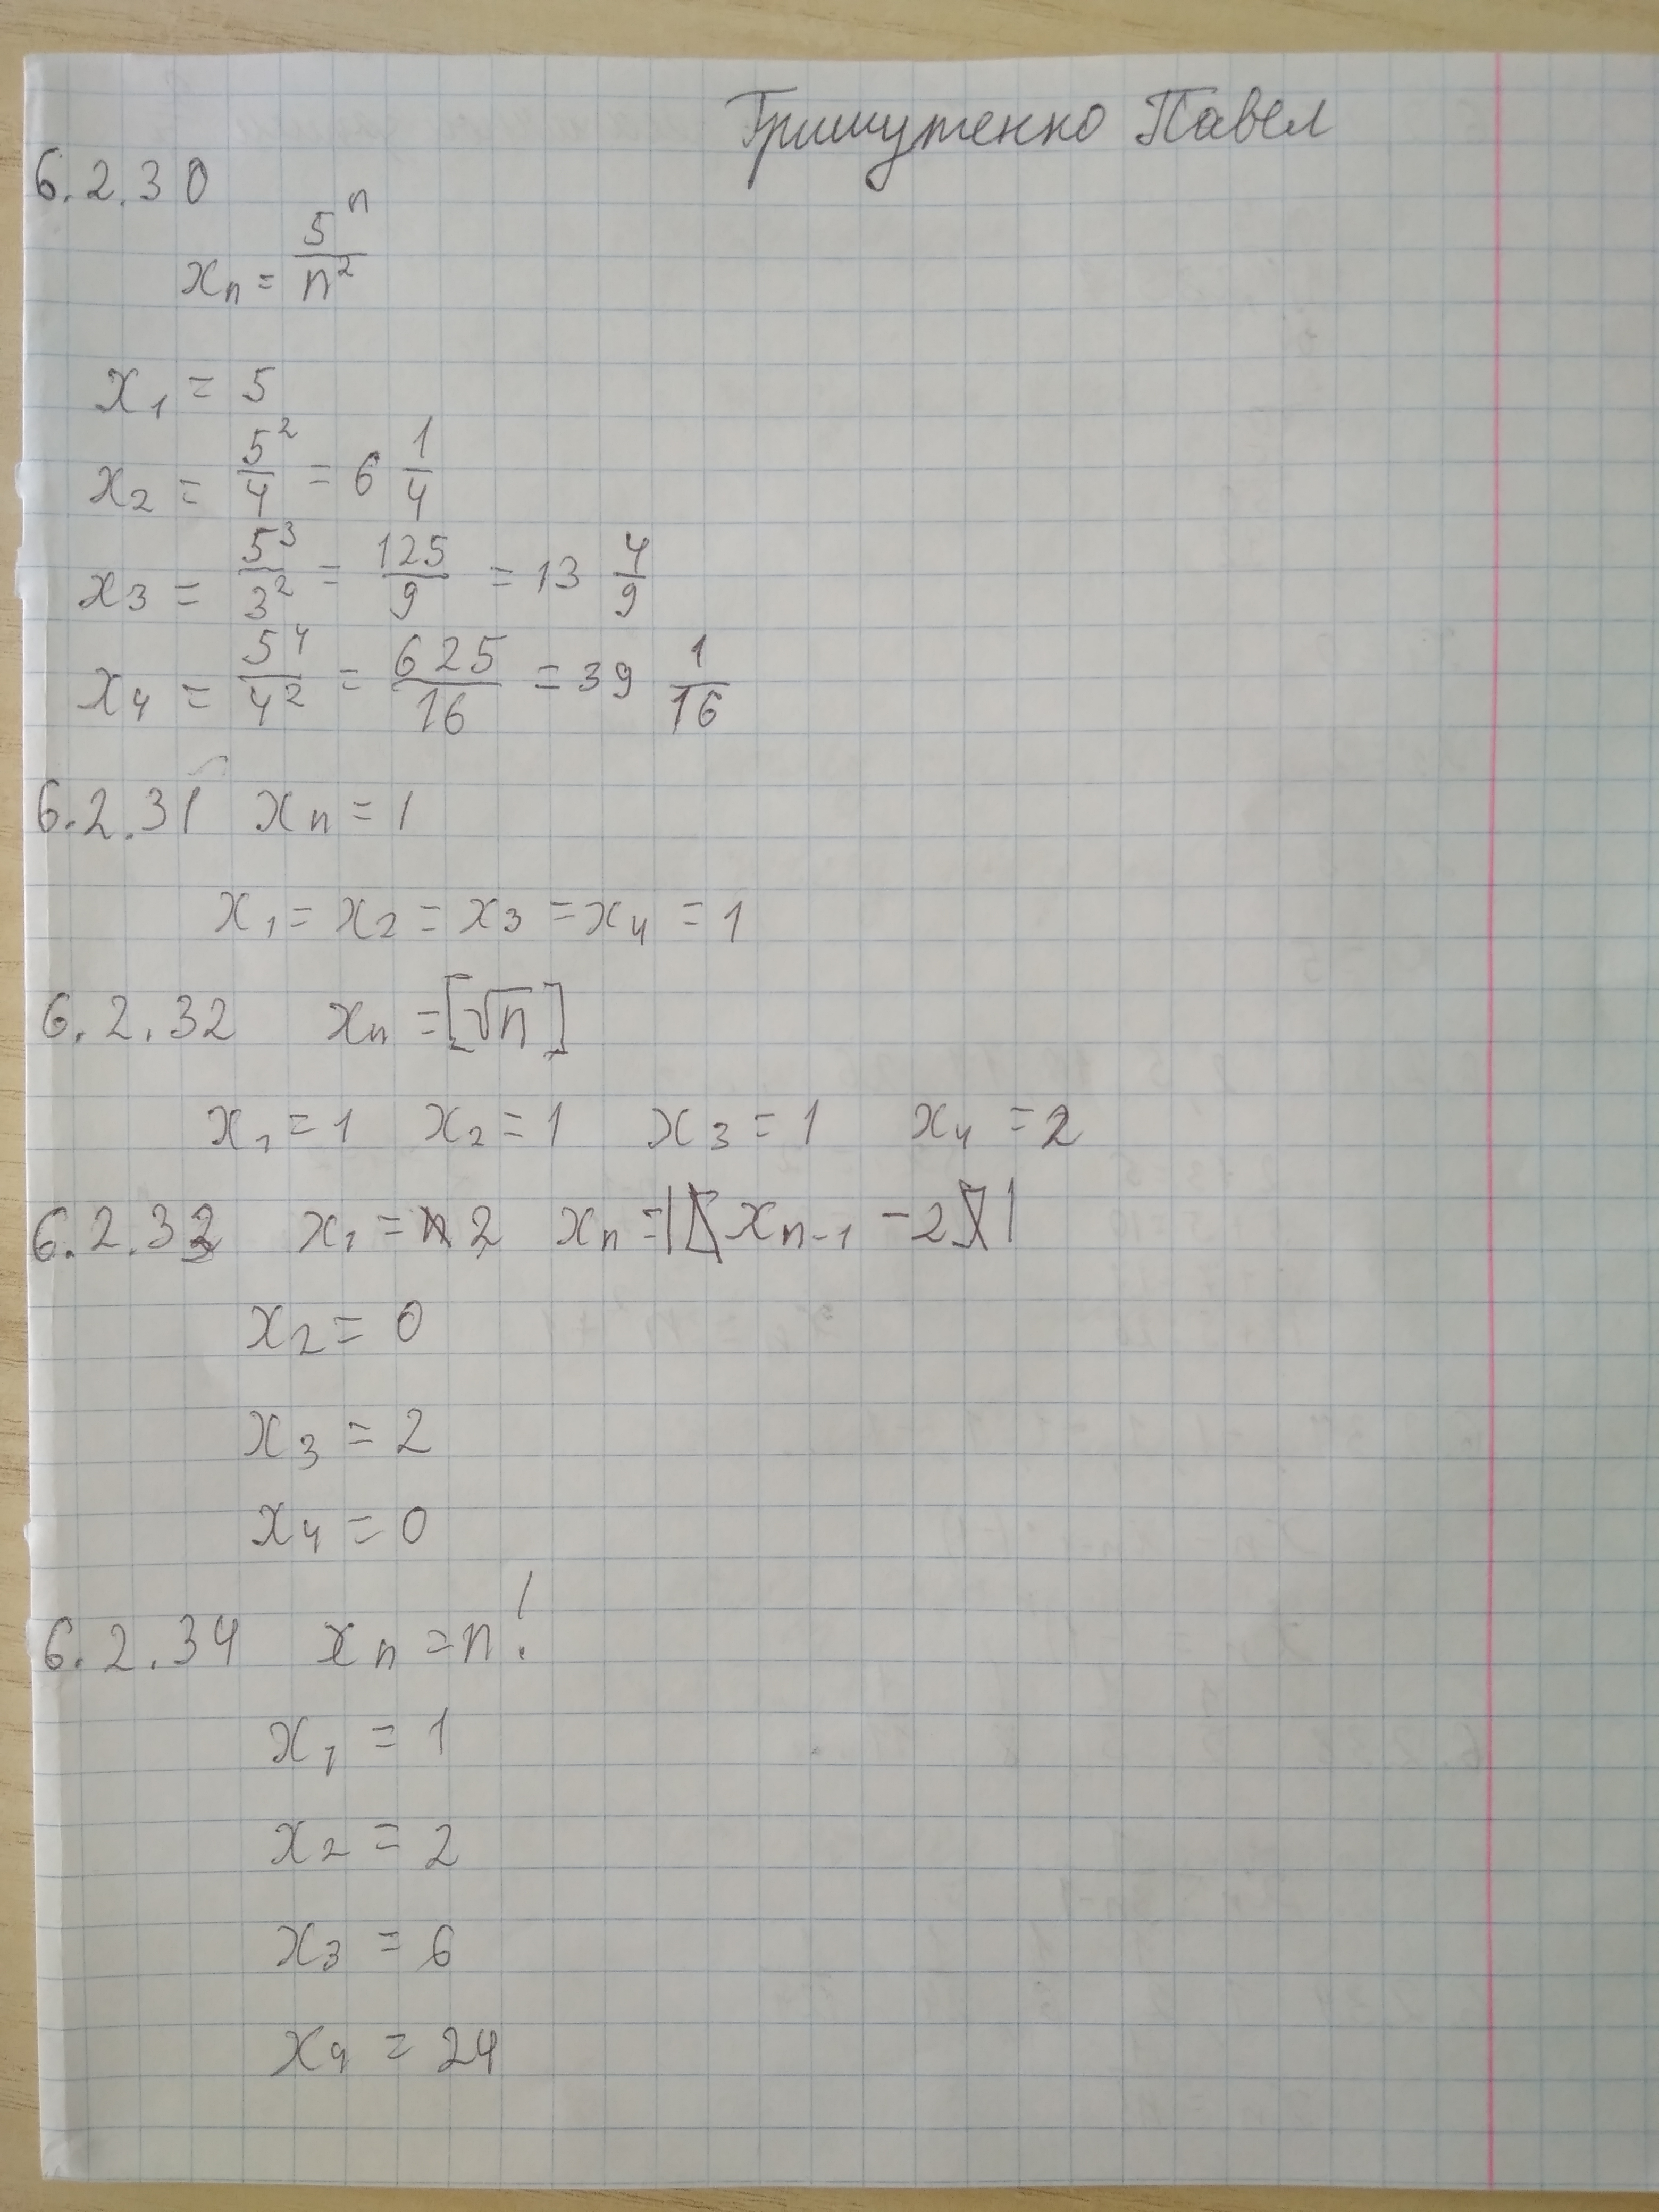 Гришутенко Павел
6.2.30
xₙ = 5ⁿ/n²
x₁ = 5
x₂ = 5²/4 = 6 1/4
x₃ = 5³/3² = 125/9 = 13 4/9
x₄ = 5⁴/4² = 625/16 = 39 1/16
6.2.31 xₙ = 1
x₁ = x₂ = x₃ = x₄ = 1
6.2.32 xₙ = [√n]
x₁ = 1 x₂ = 1 x₃ = 1 x₄ = 2
6.2.33 x₁ = 2 xₙ = |xₙ₋₁ - 2|
x₂ = 0
x₃ = 2
x₄ = 0
6.2.34 xₙ = n!
x₁ = 1
x₂ = 2
x₃ = 6
x₄ = 24